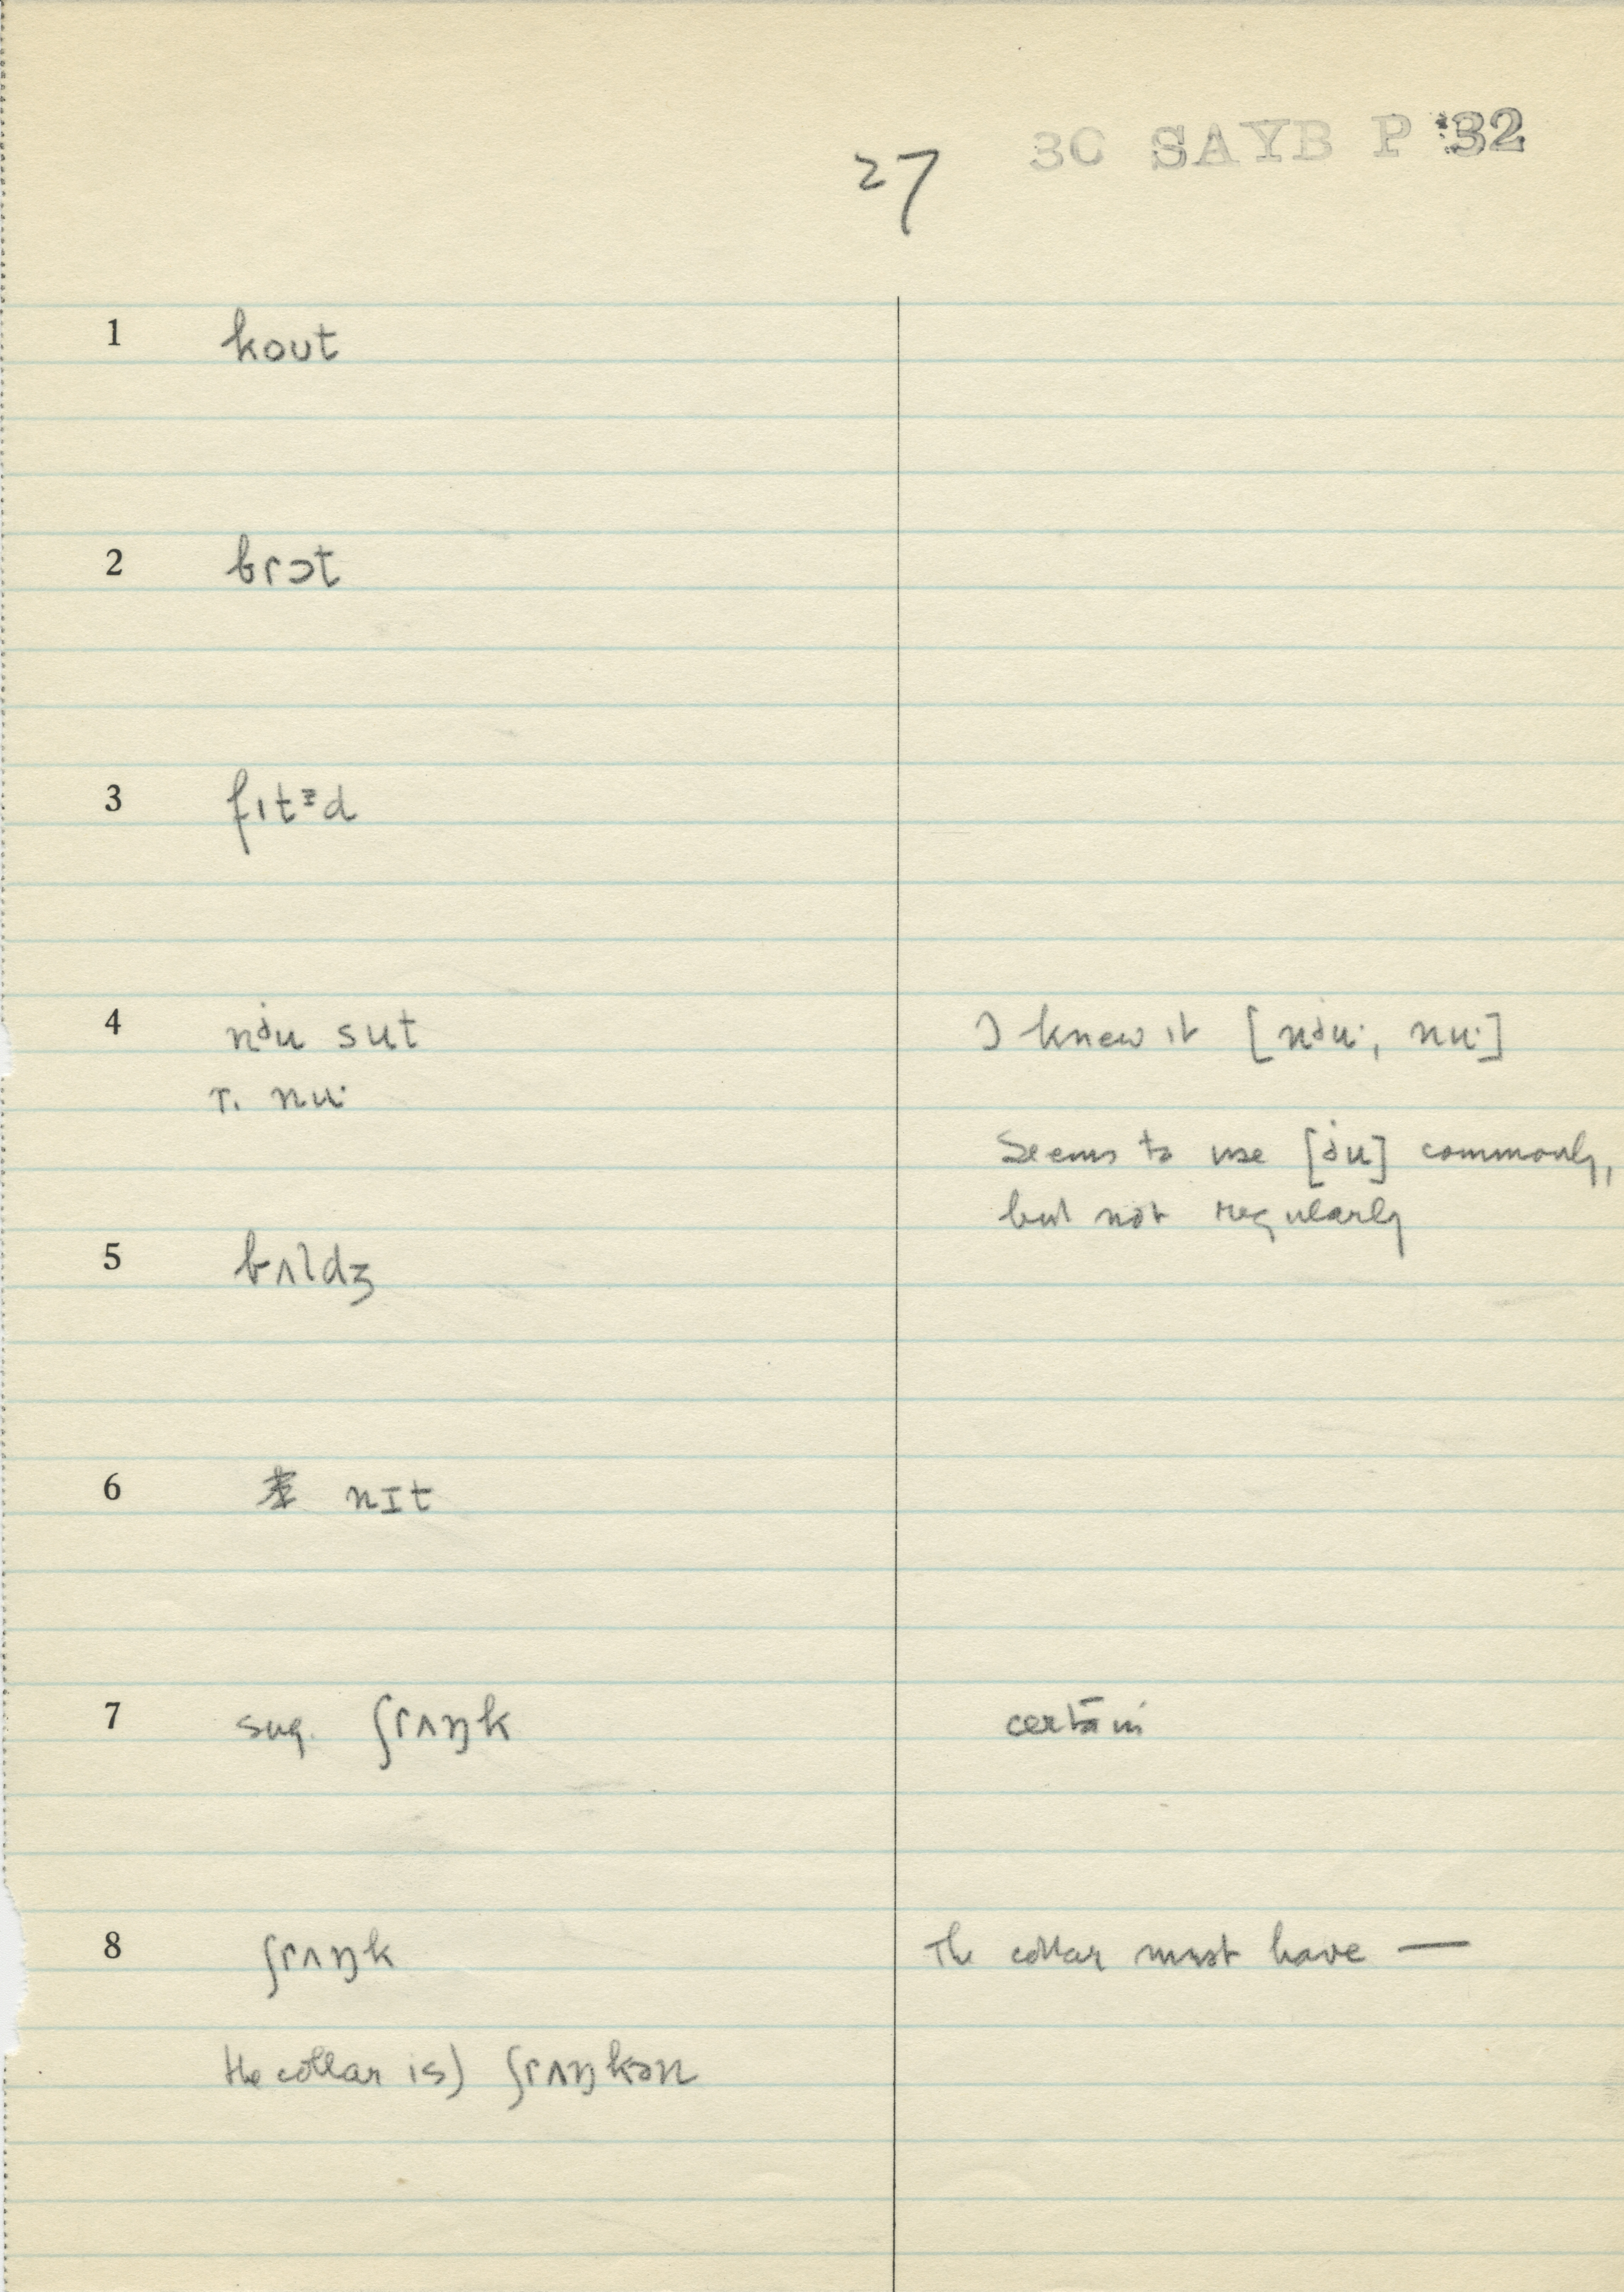 27
3C SAYB P 32
1 kout
2 brɔt
3 fɪtᵻd
4 nʲu sut I knew it [nʲu·, nu·]
r. nu·
Seems to use [ʲu] commonly,
but not regularly
5 bʌldʒ
6 nɪt
7 sug. ʃrʌŋk certain
8 ʃrʌŋk The collar must have —
the collar is) ʃrʌŋkən